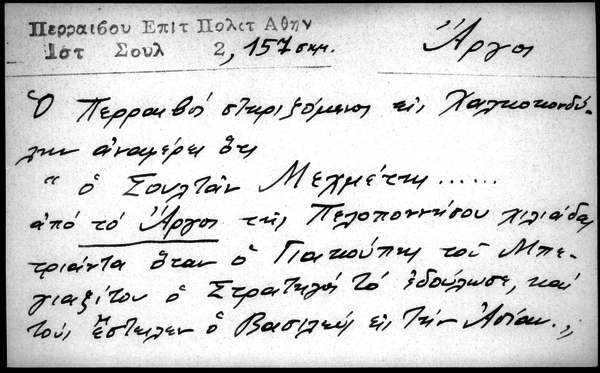 Περραιβου Επιτ Πολετ Αθην
Ιστ Σουλ 2, 157 σημ.
Ἄργος
Ὁ Περραιβός στηριζόμενος εἰς Χαλκοκονδύ-
λην ἀναφέρει ὅτι
" ὁ Σουλτὰν Μεχμέτης ......
ἀπό τό Ἄργος τῆς Πελοποννήσου χιλιάδας
τριάντα ὅταν ὁ Γιακούπης τοῦ Μπε-
γιαζίτου ὁ Στρατηγός τό ἐδούλωσε, καί
τούς ἔστειλεν ὁ Βασιλεύς εἰς τήν Ἀσίαν.,,